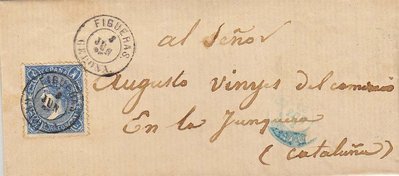 FIGUERAS
8
JUN
GERONA
ESPAÑA
Al Señor
Augusto Vinyes del comercio
En la Junquera
(Cataluña)